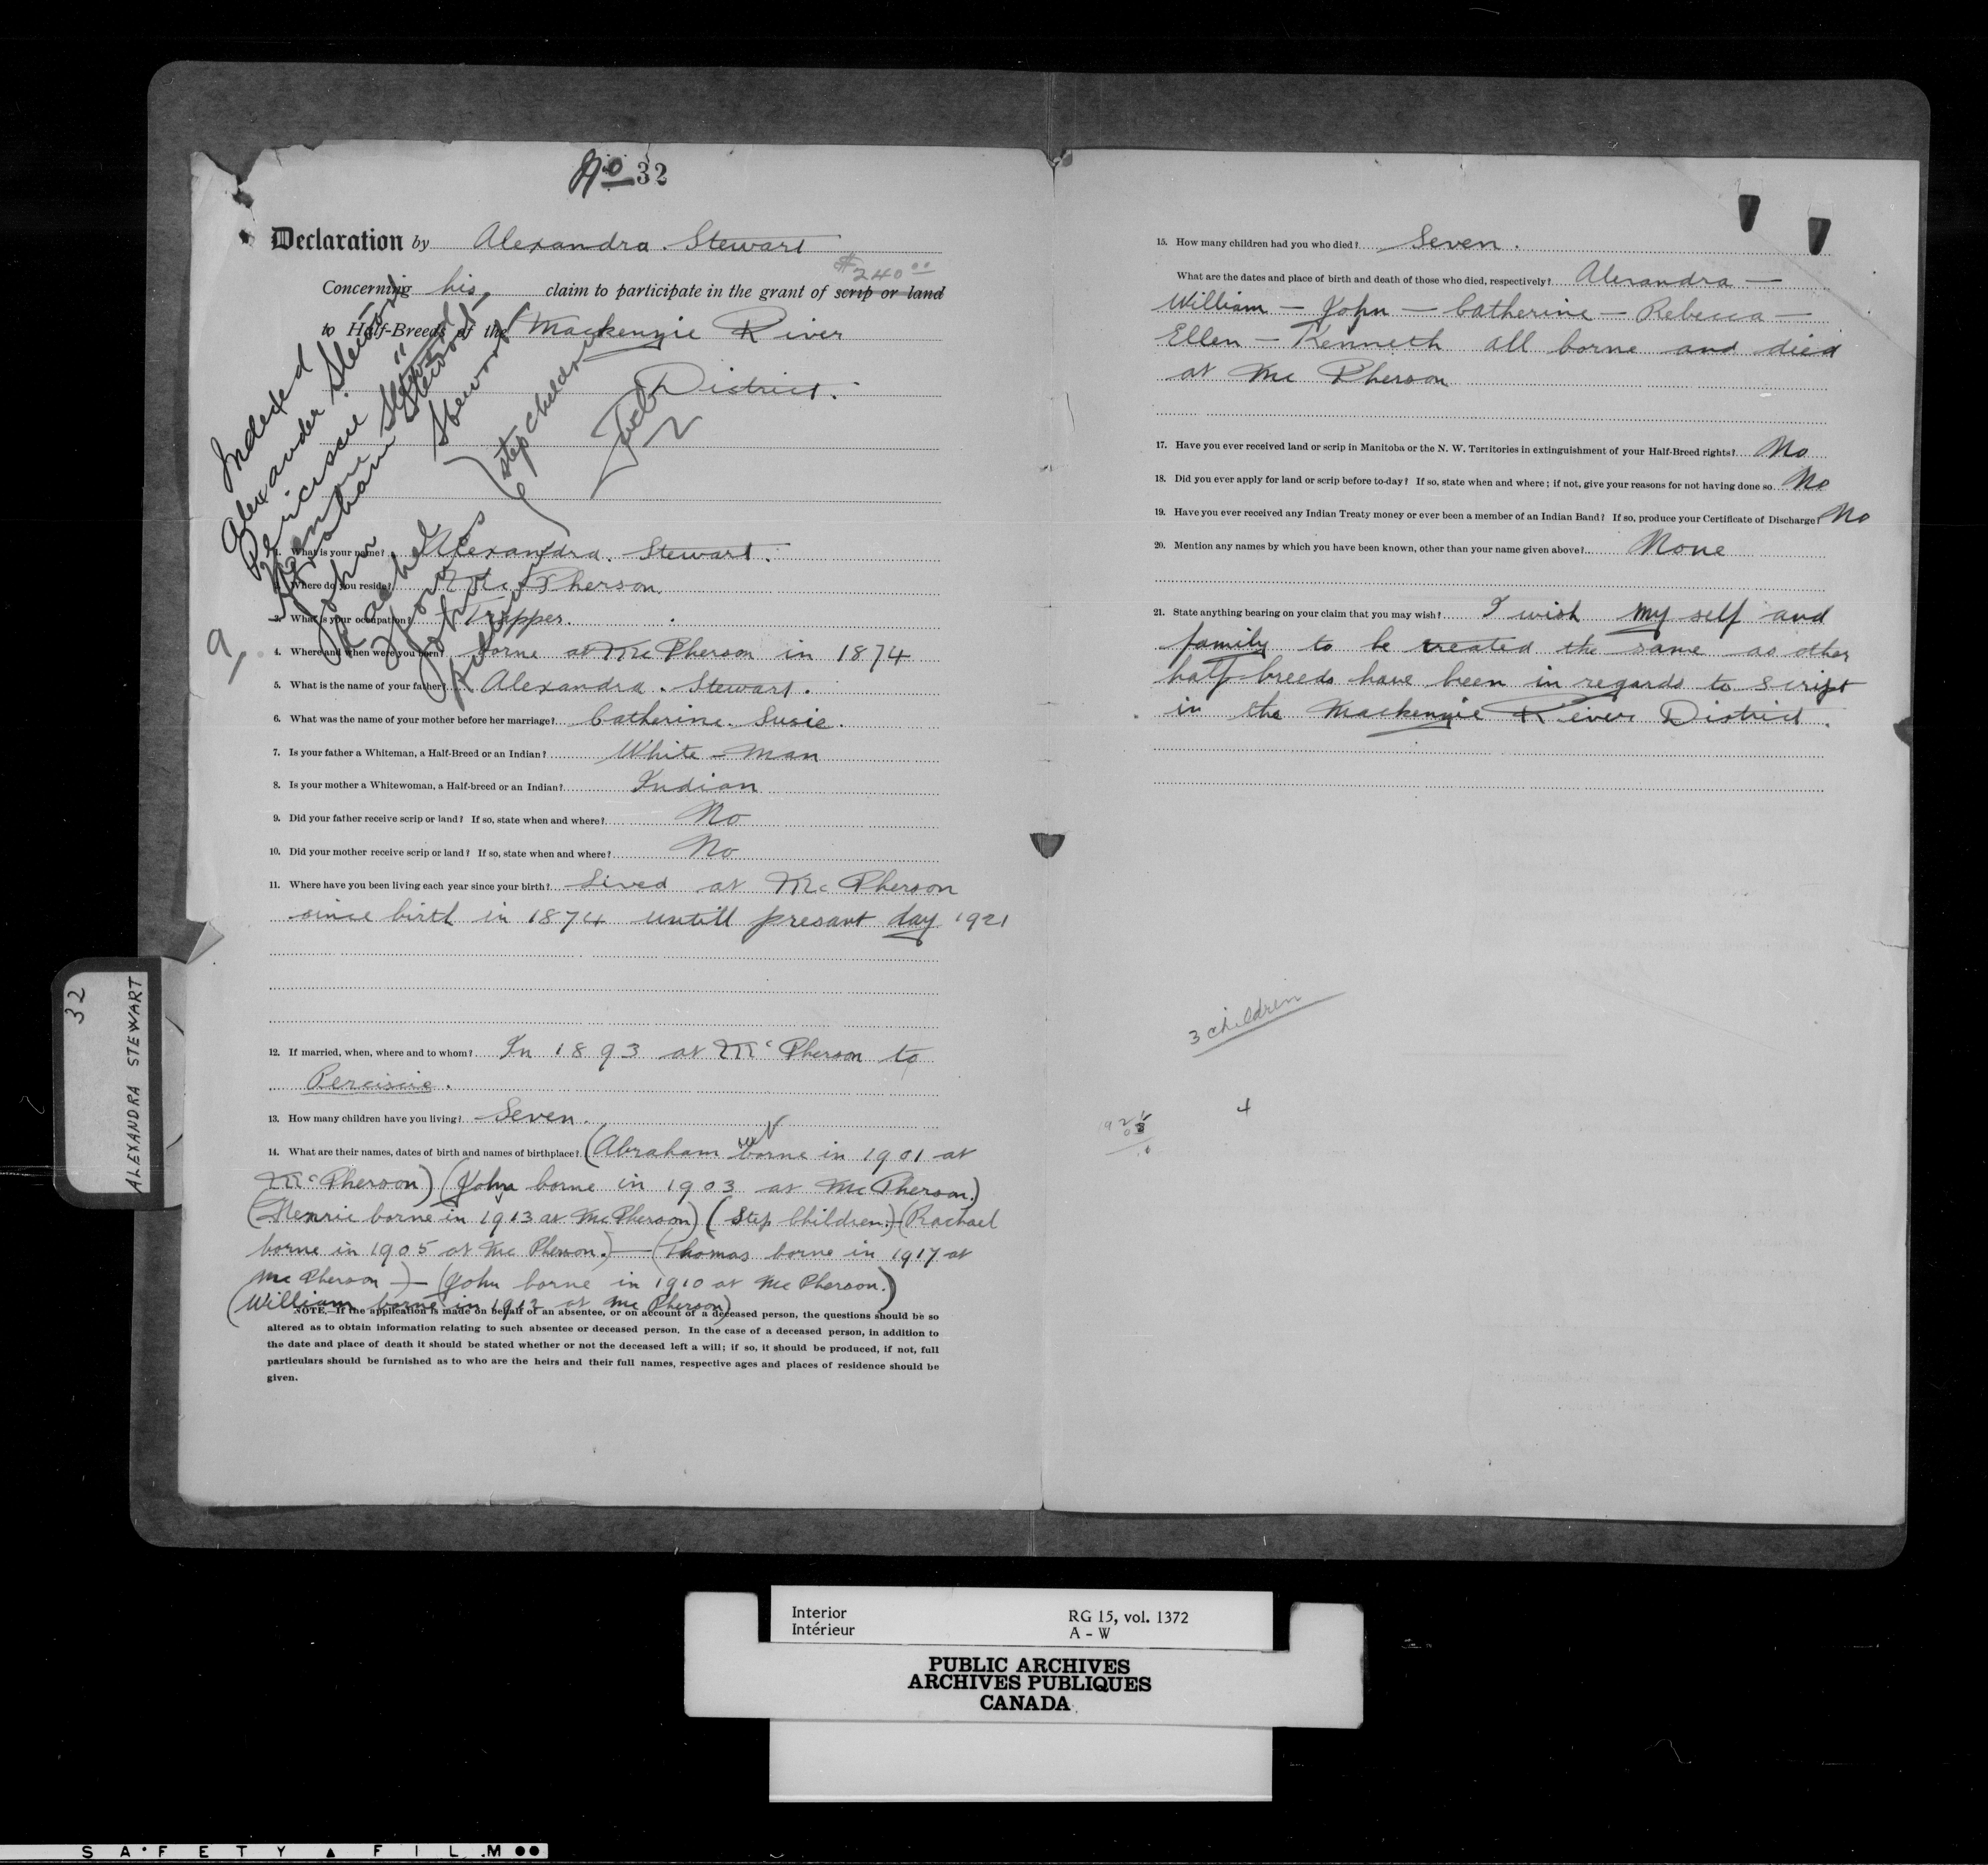 No 32
Declaration by Alexandra. Stewart
$240.00
Concerning his claim to participate in the grant of scrip or land
to Half-Breeds of the Mackenzie River
District.
Indexed
Alexander Stewart
Perciscie Stewart
Abraham Stewart
John Stewart
Rachel
Thomas
John
William
(step children
9
1. What is your name? Alexandra. Stewart.
2. Where do you reside? Mc Pherson
3. What is your occupation? Trapper.
4. Where and when were you born? borne at Mc Pherson in 1874
5. What is the name of your father? Alexandra. Stewart.
6. What was the name of your mother before her marriage? Catherine. Susie.
7. Is your father a Whiteman, a Half-Breed or an Indian? White-man
8. Is your mother a Whitewoman, a Half-breed or an Indian? Indian
9. Did your father receive scrip or land? If so, state when and where? No
10. Did your mother receive scrip or land? If so, state when and where? No
11. Where have you been living each year since your birth? Lived at Mc Pherson
since birth in 1874 untill presant day 1921
12. If married, when, where and to whom? In 1893 at Mc Pherson to
Perciscie.
13. How many children have you living? Seven.
14. What are their names, dates of birth and names of birthplace? (Abraham borne in 1901 at
Mc Pherson) (John borne in 1903 at Mc Pherson.)
(Henrie borne in 1913 at Mc Pherson) (Step Children.-(Rachael
borne in 1905 at Mc Pherson.)—(Thomas borne in 1917 at
Mc Pherson)-(John borne in 1910 at Mc Pherson.)
(William borne in 1912 at Mc Pherson)
NOTE.—If the application is made on behalf of an absentee, or on account of a deceased person, the questions should be so
altered as to obtain information relating to such absentee or deceased person. In the case of a deceased person, in addition to
the date and place of death it should be stated whether or not the deceased left a will; if so, it should be produced, if not, full
particulars should be furnished as to who are the heirs and their full names, respective ages and places of residence should be
given.
32
ALEXANDRA STEWART
15. How many children had you who died? Seven.
What are the dates and place of birth and death of those who died, respectively? Alexandra —
William — John — Catherine — Rebecca —
Ellen — Kenneth all borne and died
at Mc Pherson
17. Have you ever received land or scrip in Manitoba or the N. W. Territories in extinguishment of your Half-Breed rights? No
18. Did you ever apply for land or scrip before to-day? If so, state when and where; if not, give your reasons for not having done so. No
19. Have you ever received any Indian Treaty money or ever been a member of an Indian Band? If so, produce your Certificate of Discharge? No
20. Mention any names by which you have been known, other than your name given above? None
21. State anything bearing on your claim that you may wish? I wish my self and
family to be treated the same as other
half-breeds have been in regards to script
in the Mackenzie River District.
3 children
4
Interior
Intérieur
RG 15, vol. 1372
A - W
PUBLIC ARCHIVES
ARCHIVES PUBLIQUES
CANADA
SAFETY FILM